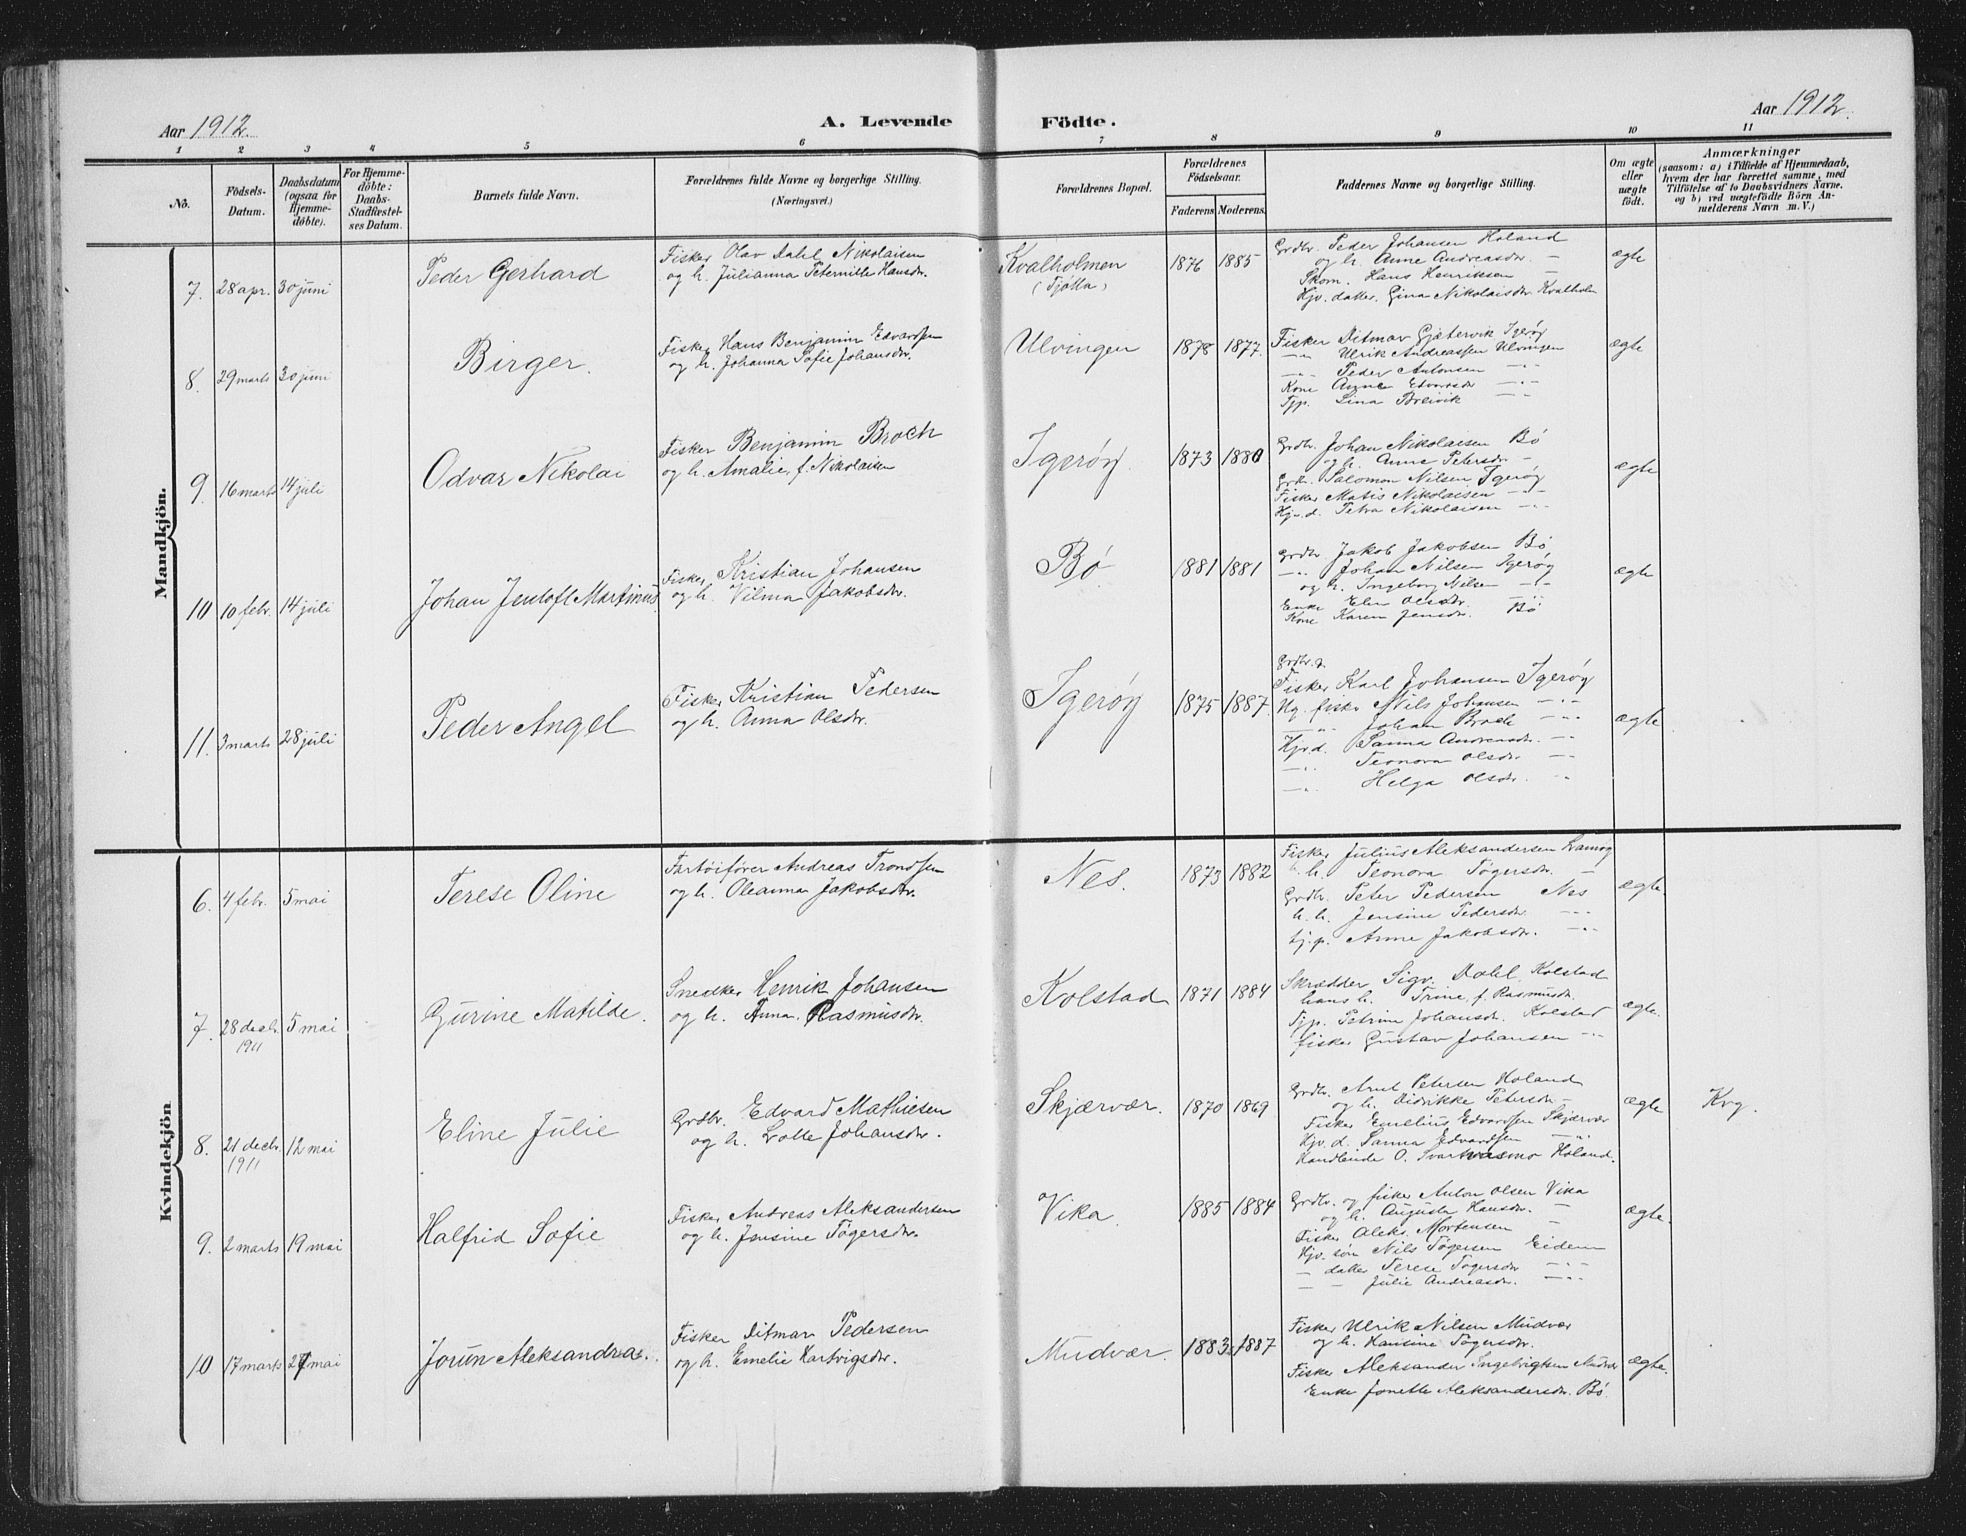 Aar 1912.
A. Levende
Födte.
Aar 1912.
1 2 3 4 5 6 7 8 9 10 11
No.
Födsels-
Datum.
Daabsdatum
(ogsaa for
Hjemme-
döbte).
For Hjemme-
döbte:
Daabs-
Stadfæstel-
ses Datum.
Barnets fulde Navn.
Forældrenes fulde Navne og borgerlige Stilling.
(Næringsvei.)
Forældrenes Bopæl.
Forældrenes
Födselsaar.
Faderens Moderens.
Faddernes Navne og borgerlige Stilling.
Om ægte
eller
uægte
födt.
Anmærkninger
(saasom: a) i Tilfælde af Hjemmedaab,
hvem der har forrettet samme, med
Tilföielse af to Daabsvidners Navne,
og b) ved uægtefödte Börn An-
melderens Navn m. V.)
Mandkjön.
7. 28 apr. 30 juni
Peder Gerhard
Fisker Olav Dahl Nikolaisen
og h. Julianna Peternille Hansdr.
Kvalholmen
(Tjøtta)
1876 1885
Grdbr. Peder Johansen Holand
og h. Anne Andreasdr. —
Skom. Hans Henriksen —
Hjv. datter. Gina Nikolaisdr Kvalholm
ægte
8. 29 marts 30 juni
Birger.
Fisker Hans Benjamin Edvardsen
og h. Johanna Sofie Johansdr.
Ulvingen
1878 1877.
Fisker Ditmar Gjetervik Igerøy
—"— Ulrik Andreassen Ulvingen
—"— Peder Antonsen —"—
Kone Anne Edvardsdr —"—
Tjp. Lina Breivik —"—
ægte
9. 16 marts 14 juli
Odvar Nikolai
Fisker Benjamin Broch
og h. Amalie, f. Nikolaisen
Igerøy.
1873 1880
Grdbr. Johan Nikolaisen Bø
og h. Anne Petersdr —
Grdbr. Salomon Nilsen Igerøy
Fisker Matis Nikolaisen —"—
Hjv.d. Petra Nikolaisen —"—
ægte
10 10 febr. 14 juli
Johan Jentoft Martinus.
Fisker Kristian Johansen
og h. Vilma Jakobsdr.
Bø
1881 1881
Grdbr. Jakob Jakobsen Bø
—"— Johan Nilsen Igerøy
og h. Ingeborg Nilsen —"—
Enke Elen Olsdr. —"—
Kone Karen Jensdr. Bø
ægte
11. 3 marts 28 juli
Peder Angel
Fisker Kristian Pedersen
og h. Anna Olsdr.
Igerøy
1875 1887.
Grdbr. &
Fisker Karl Johansen Igerøy
Ug. fisker Nils Johansen —"—
—"— Johan Broch —"—
Hjv.d. Sanna Andreasdr. —"—
—"— Leonora Olsdr —"—
—"— Helga Olsdr. —"—
ægte
Kvindekjön
6. 4 febr. 5 mai
Terese Oline
Fartøifører Andreas Trondsen
og h. Oleanna Jakobsdr.
Nes.
1873 1882
Fisker Julius Aleksandersen
h. h. Leonora Tøgersdr. —
Grdbr. Peter Pedersen Nes
h. h. Jensine Pedersdr. —"—
tj.p. Anne Jakobsdr. —"—
ægte.
7. 28 decbr. 1911 5 mai
Gurine Matilde.
Snedker Henrik Johansen
og h. Anna Rasmusdr.
Kolstad
1871 1884
Skrædder Sigv. Dahl Kolstad
hans h. Trine f. Rasmusdr.
Tjp. Petrine Johansdr. Kolstad
fisker Gustav Johansen —"—
ægte.
8. 21 decbr. 1911 12 mai
Eline Julie
Grdbr. Edvard Mathiesen
og h. Lotte Johansdr.
Skjærvær.
1870 1869
Grdbr. Arnt Petersen Holand
og h. Didrikke Petersdr —
Fisker Emelius Edvardsen Skjærvær
Hjv. d. Sanna Edvardsen —"—
Handlende O. Svartvasmo Holand.
ægte
Kvg.
9. 2 marts 19 mai
Halfrid Sofie
Fisker Andreas Aleksandersen
og h. Jensine Tøgersdr.
Vika.
1885 1884
Grdbr. og fisker Anton Olsen Vika
og h. Augusta Hansdr. —
Fisker Aleks. Mortensen —
Hjv. søn Nils Tøgersen Eidem
— datter Terese Tøgersdr —"—
— — Julie Andreasdr. —"—
ægte.
10 17 marts 27 mai
Jorun Aleksandra.
Fisker Ditmar Pedersen
og h. Emelie Hartvigsdr.
Mudvær.
1883 1887
Fisker Ulrik Nilsen Mudvær
og h. Hansine Tøgersdr.
Fisker Aleksander Ingebrigtsen Mudvær
Enke Jonette Aleksandersdr. Bø.
ægte.